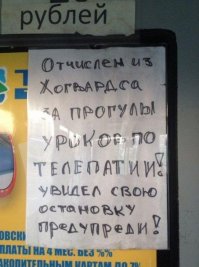 рублей
Отчислен из
Хогвардса
за прогулы
уроков по
телепатии!
увидел свою
остановку
предупреди!
платы на 4 мес. без %%